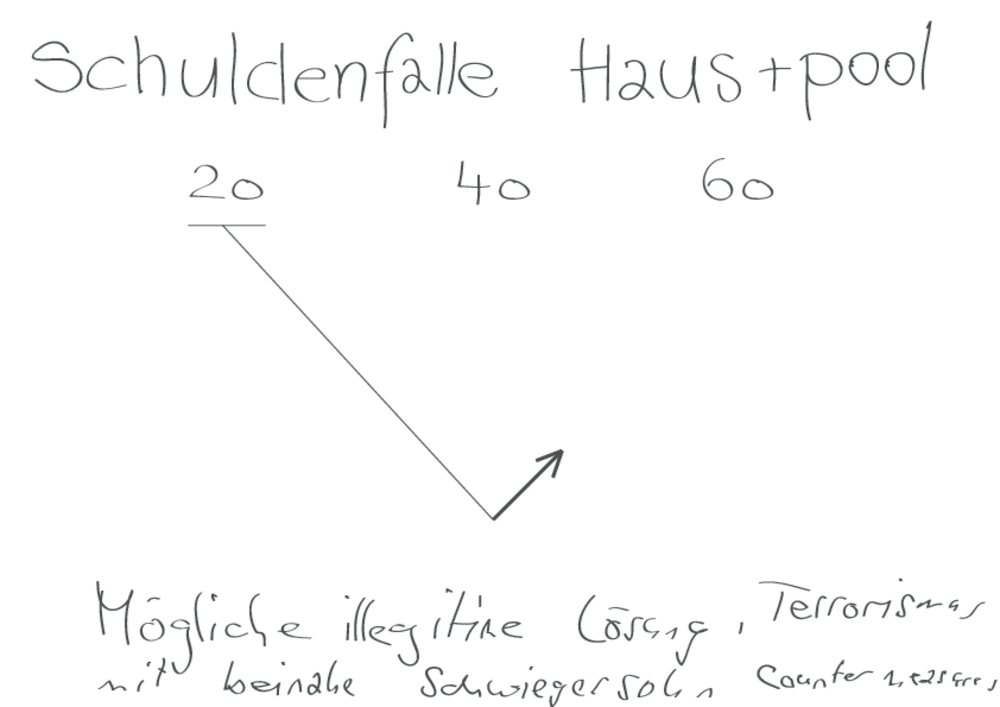 Schuldenfalle Haus+pool
20 40 60
Mögliche illegitime Lösung, Terrorismus
mit beinahe Schwiegersohn Counter